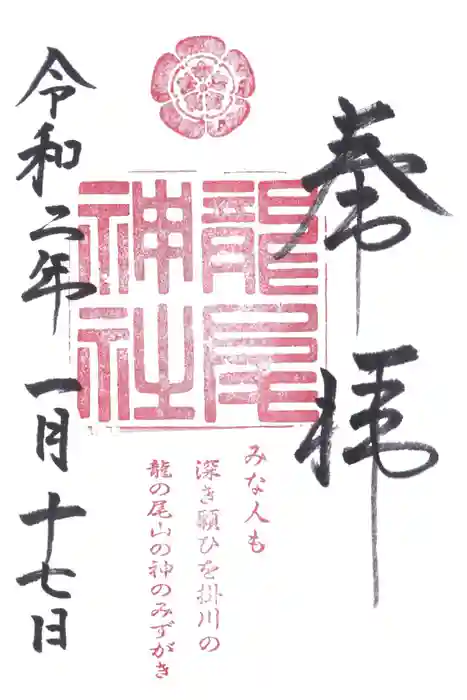 奉拝
龍尾
神社
みな人も
深き願ひを掛川の
龍の尾山の神のみずがき
令和二年一月十七日